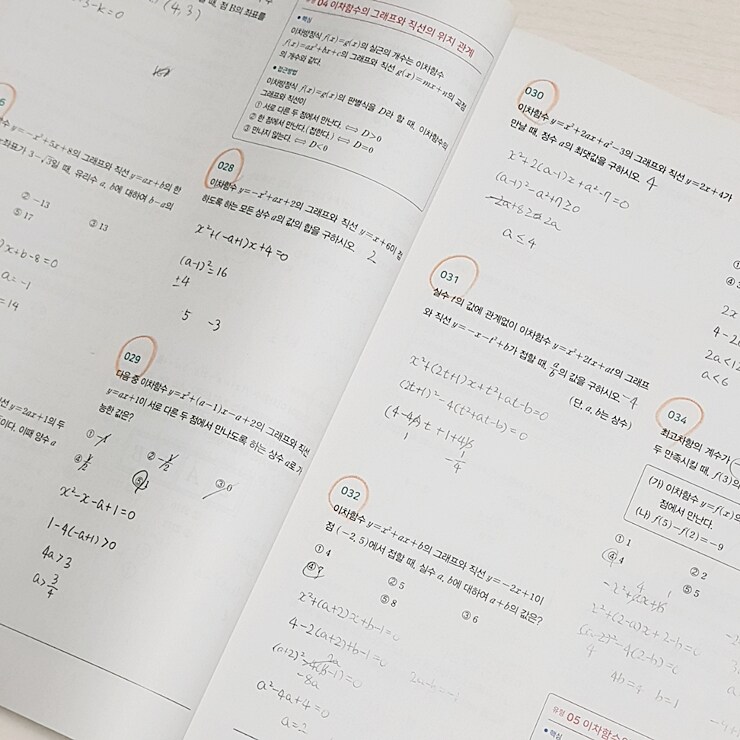 -k=0
(4, 3)
때, 점 B의 좌표를
04 이차함수의 그래프와 직선의 위치 관계
• 핵심
이차방정식 f(x)=g(x)의 실근의 개수는 이차함수
f(x)=ax²+bx+c의 그래프와 직선 g(x)=mx+n의 교점
의 개수와 같다.
• 접근방법
이차방정식 f(x)=g(x)의 판별식을 D라 할 때, 이차함수의
그래프와 직선이
① 서로 다른 두 점에서 만난다. ⟺ D>0
② 한 점에서 만난다.(접한다.) ⟺ D=0
③ 만나지 않는다. ⟺ D<0
6
y=-x²+5x+8의 그래프와 직선 y=ax+b의 한
좌표가 3-√3일 때, 유리수 a, b에 대하여 b-a의
② -13
③ 13
⑤ 17
x+b-8=0
a=-1
=14
028
이차함수 y=-x²+ax+2의 그래프와 직선 y=x+6이 접
하도록 하는 모든 상수 a의 값의 합을 구하시오. 2
x²+(-a+1)x+4=0
(a-1)²=16
±4
5 -3
029
다음 중 이차함수 y=x²+(a-1)x-a+2의 그래프와 직선
y=ax+1이 서로 다른 두 점에서 만나도록 하는 상수 a로 가
능한 값은?
① -1
② -1/2
③ 0
④ 1/2
⑤ 1
x²-x-a+1=0
1-4(-a+1)>0
4a>3
a>3/4
y=2ax+1의 두
이다. 이때 양수 a
030
이차함수 y=x²+2ax+a²-3의 그래프와 직선 y=2x+4가
만날 때, 정수 a의 최댓값을 구하시오. 4
x²+2(a-1)x+a²-7=0
(a-1)²-a²+7≥0
-2a+8≥0
a≤4
031
실수 t의 값에 관계없이 이차함수 y=x²+2tx+at의 그래프
와 직선 y=-x-t²+b가 접할 때, a/b의 값을 구하시오. -4
(단, a, b는 상수)
x²+(2t+1)x+t²+at-b=0
(2t+1)²-4(t²+at-b)=0
(4-4a)t+1+4b
1
-1/4
032
이차함수 y=x²+ax+b의 그래프와 직선 y=-2x+1이
점 (-2, 5)에서 접할 때, 실수 a, b에 대하여 a+b의 값은?
① 4
② 5
③ 6
④ 7
⑤ 8
x²+(a+2)x+b-1=0
4-2(a+2)+b-1=0
2a-b=-1
(a+2)²-4(b-1)=0
2a
-8a
a²-4a+4=0
a=2
①
④ 3
2x
4-2
2a<12
a<6
034
최고차항의 계수가
두 만족시킬 때, f(3)의
(가) 이차함수 y=f(x)의
점에서 만난다.
(나) f(5)-f(2)=-9
① 1
② 2
④ 4
⑤ 5
4 1
x²+(2-a)x+2-b=0
(a-2)²-4(2-b)=0
4
4b=4 b=1
유형 05 이차함수의
• 핵심